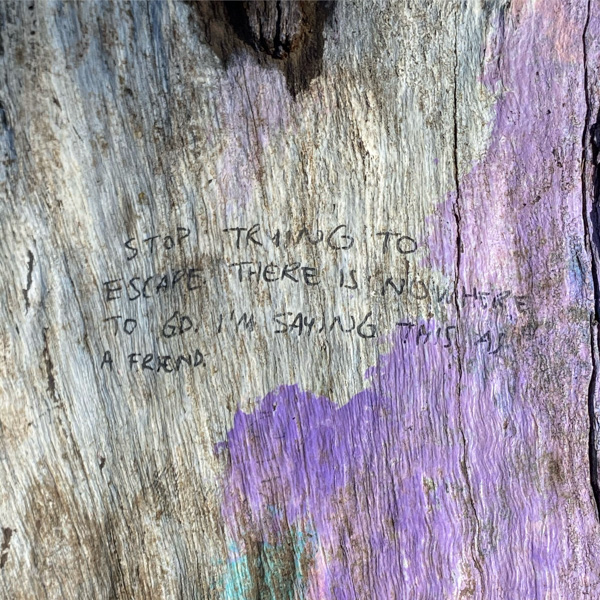 STOP TRYING TO
ESCAPE THERE IS NOWHERE
TO GO. I'M SAYING THIS AS
A FRIEND.